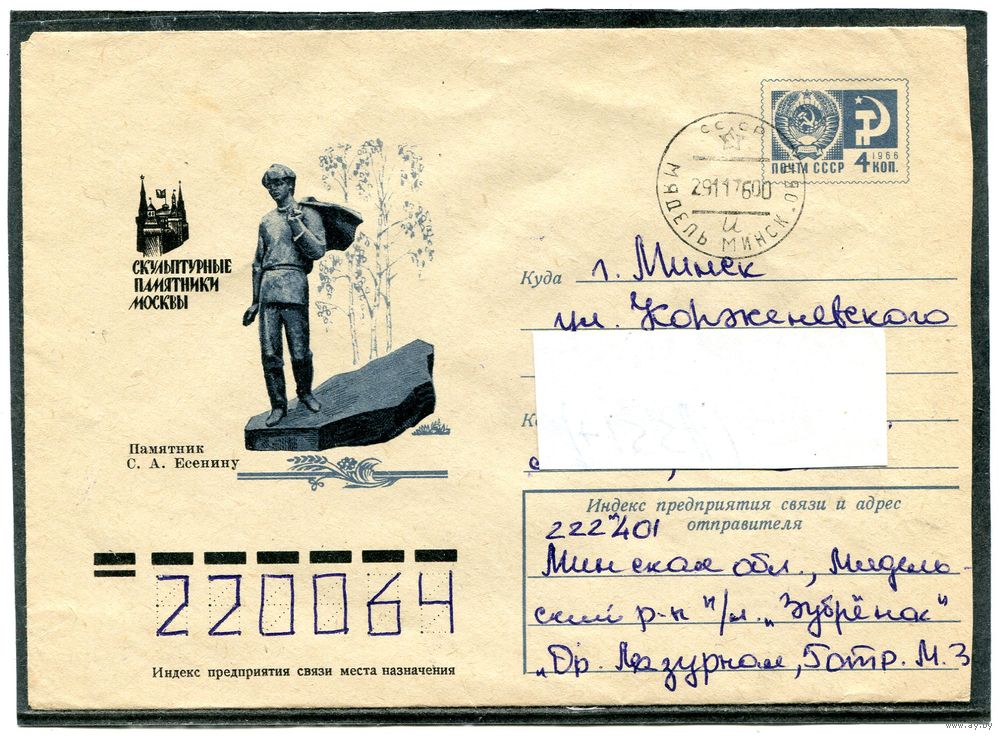 СКУЛЬПТУРНЫЕ
ПАМЯТНИКИ
МОСКВЫ
Памятник
С. А. Есенину
ПОЧТА СССР
1966
4 КОП.
СССР
МЯДЕЛЬ МИНСК. ОБЛ
291176 00
и
Куда г. Минск
ул. Корженевского
Индекс предприятия связи и адрес
отправителя
222401
Минская обл., Мядель-
ский р-н п/л. „Зубрёнок"
„Др. Лазурная, 7 отр. М. З
220064
Индекс предприятия связи места назначения
www.ay.by